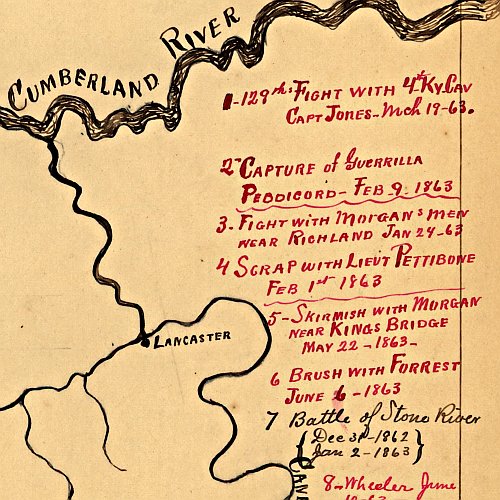 CUMBERLAND RIVER
1-129th FIGHT WITH 4th KY CAV
CAPT JONES-Mch 19-63.
2- CAPTURE of GUERRILLA
PEDDICORD- FEB 9 1863
3- FIGHT WITH MORGAN'S MEN
NEAR RICHLAND JAN 24-63
4 SCRAP WITH LIEUT PETTIBONE
FEB 1st 1863
5- SKIRMISH WITH MORGAN
NEAR KINGS BRIDGE
MAY 22-1863-
LANCASTER
6 BRUSH WITH FORREST
JUNE 6-1863
7 Battle of Stone River
{Dec 31-1862
Jan 2-1863}
8- Wheeler June